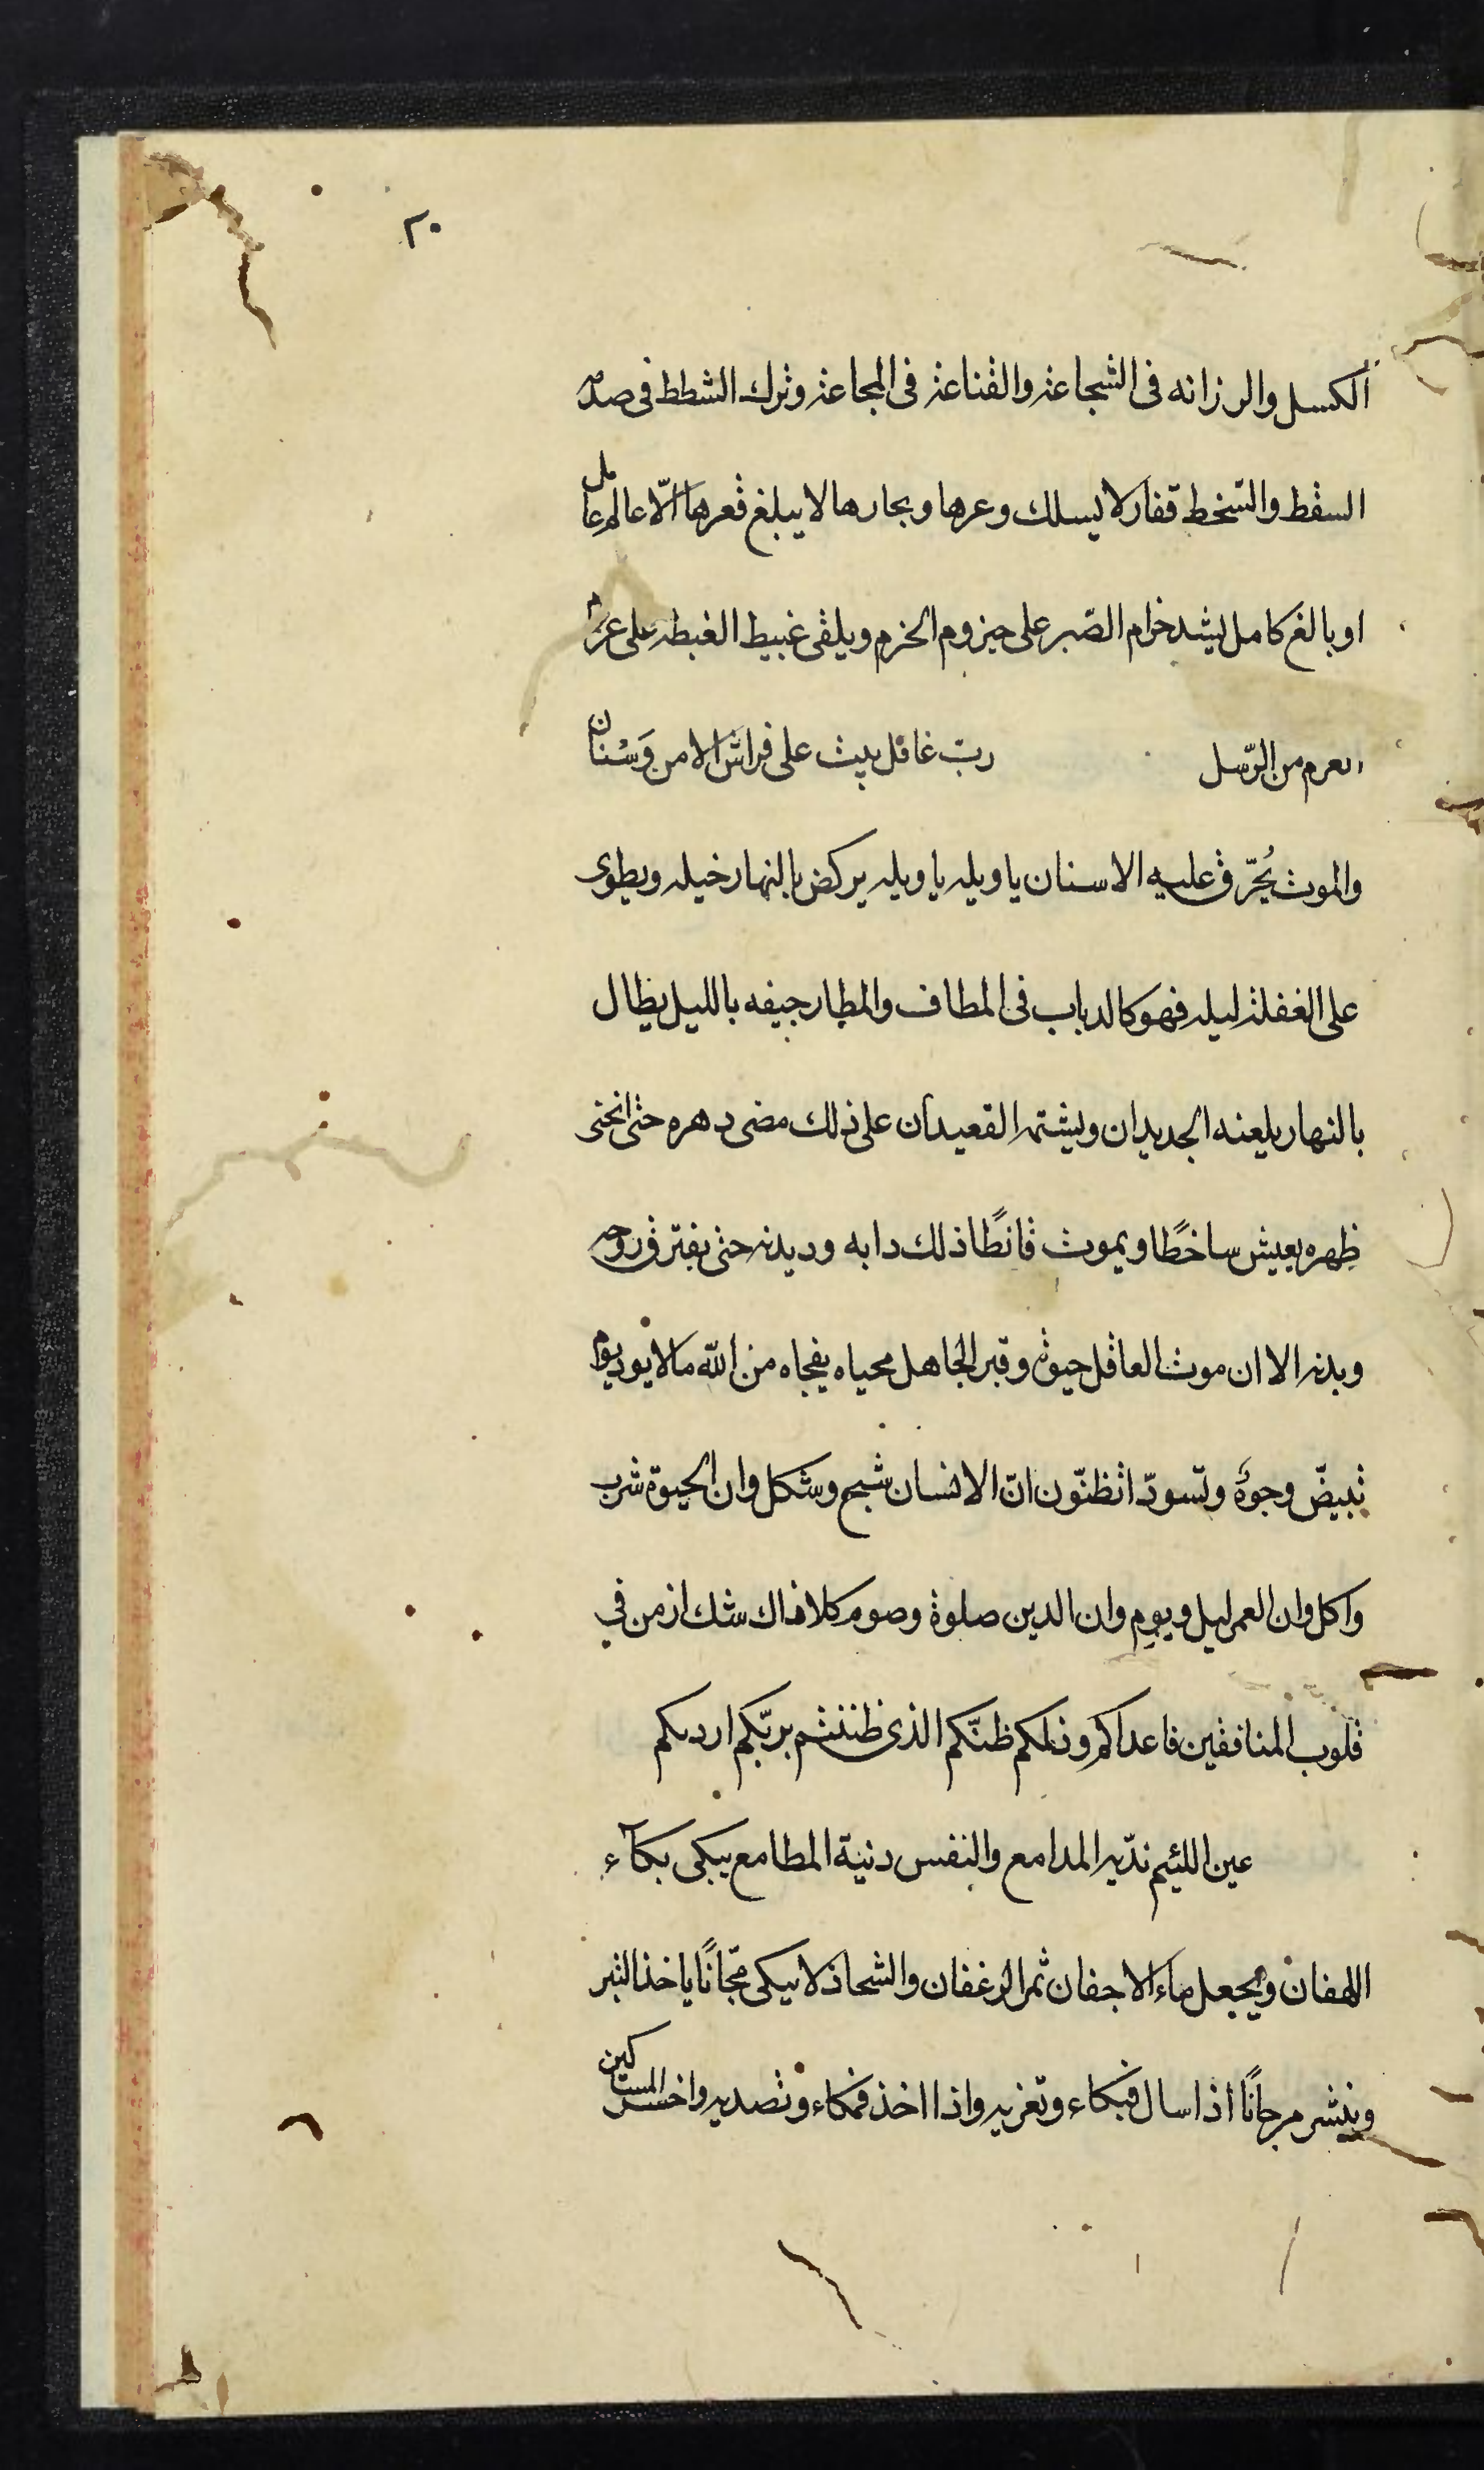 ٢٠
الكسل والرزانه فى الشجاعة والقناعة فى المجاعة وترك الشطط فى صدمه
السقط والتسخط قفار لا يسلك وعرها وبحارها لا يبلغ قعرها الّا عالم عامل
او بالغ كامل يشد خرام الصّبر على حيزوم الحزم ويلقى غبيط الغبطه على
من الرّسل ربّ غافل يبيت على فراش الامن وَسْنان
والموت يُحَرّق عليه الاسنان يا ويله يا ويله يركض بالنهار خيله ويطوى
على الغفلة ليله فهو كالدباب فى المطاف والمطار جيفه بالليل بطال
بالنهار يلعنه الجديدان ويشتمه القعيدان على ذلك مضى دهره حتى انحنى
ظهره يعيش ساخطًا ويموت قانطًا ذلك دابه وديدنه حتى يفترق روحه
وبدنه الا ان موت العاقل حيوته وقبر الجاهل محياه يفجاه من اللّه مالا يود يوم
تبيضّ وجوهٌ وتسودّ اتظنّون انّ الانسان شبح وشكل وان الحيوة شرب
واكل وان العمر ليل ويوم وان الدين صلوة وصوم كلا ذاك شك ازمن في
قلوب المنافقين فاعداكم وذلكم ظنّكم الذى ظننتم بربّكم ارديكم
عين اللئيم نديّه المدامع والنفس دنية المطامع يبكى بكآء
اللهفان ويجعل ماء الاجفان ثمر الرغفان والشحاذ لا يبكى مجّانًا ياخذ التبر
وينثر مرجانًا اذا سال فبكاء وتغريه واذا اخذ فمكاء وتصديه واخسر المساكين